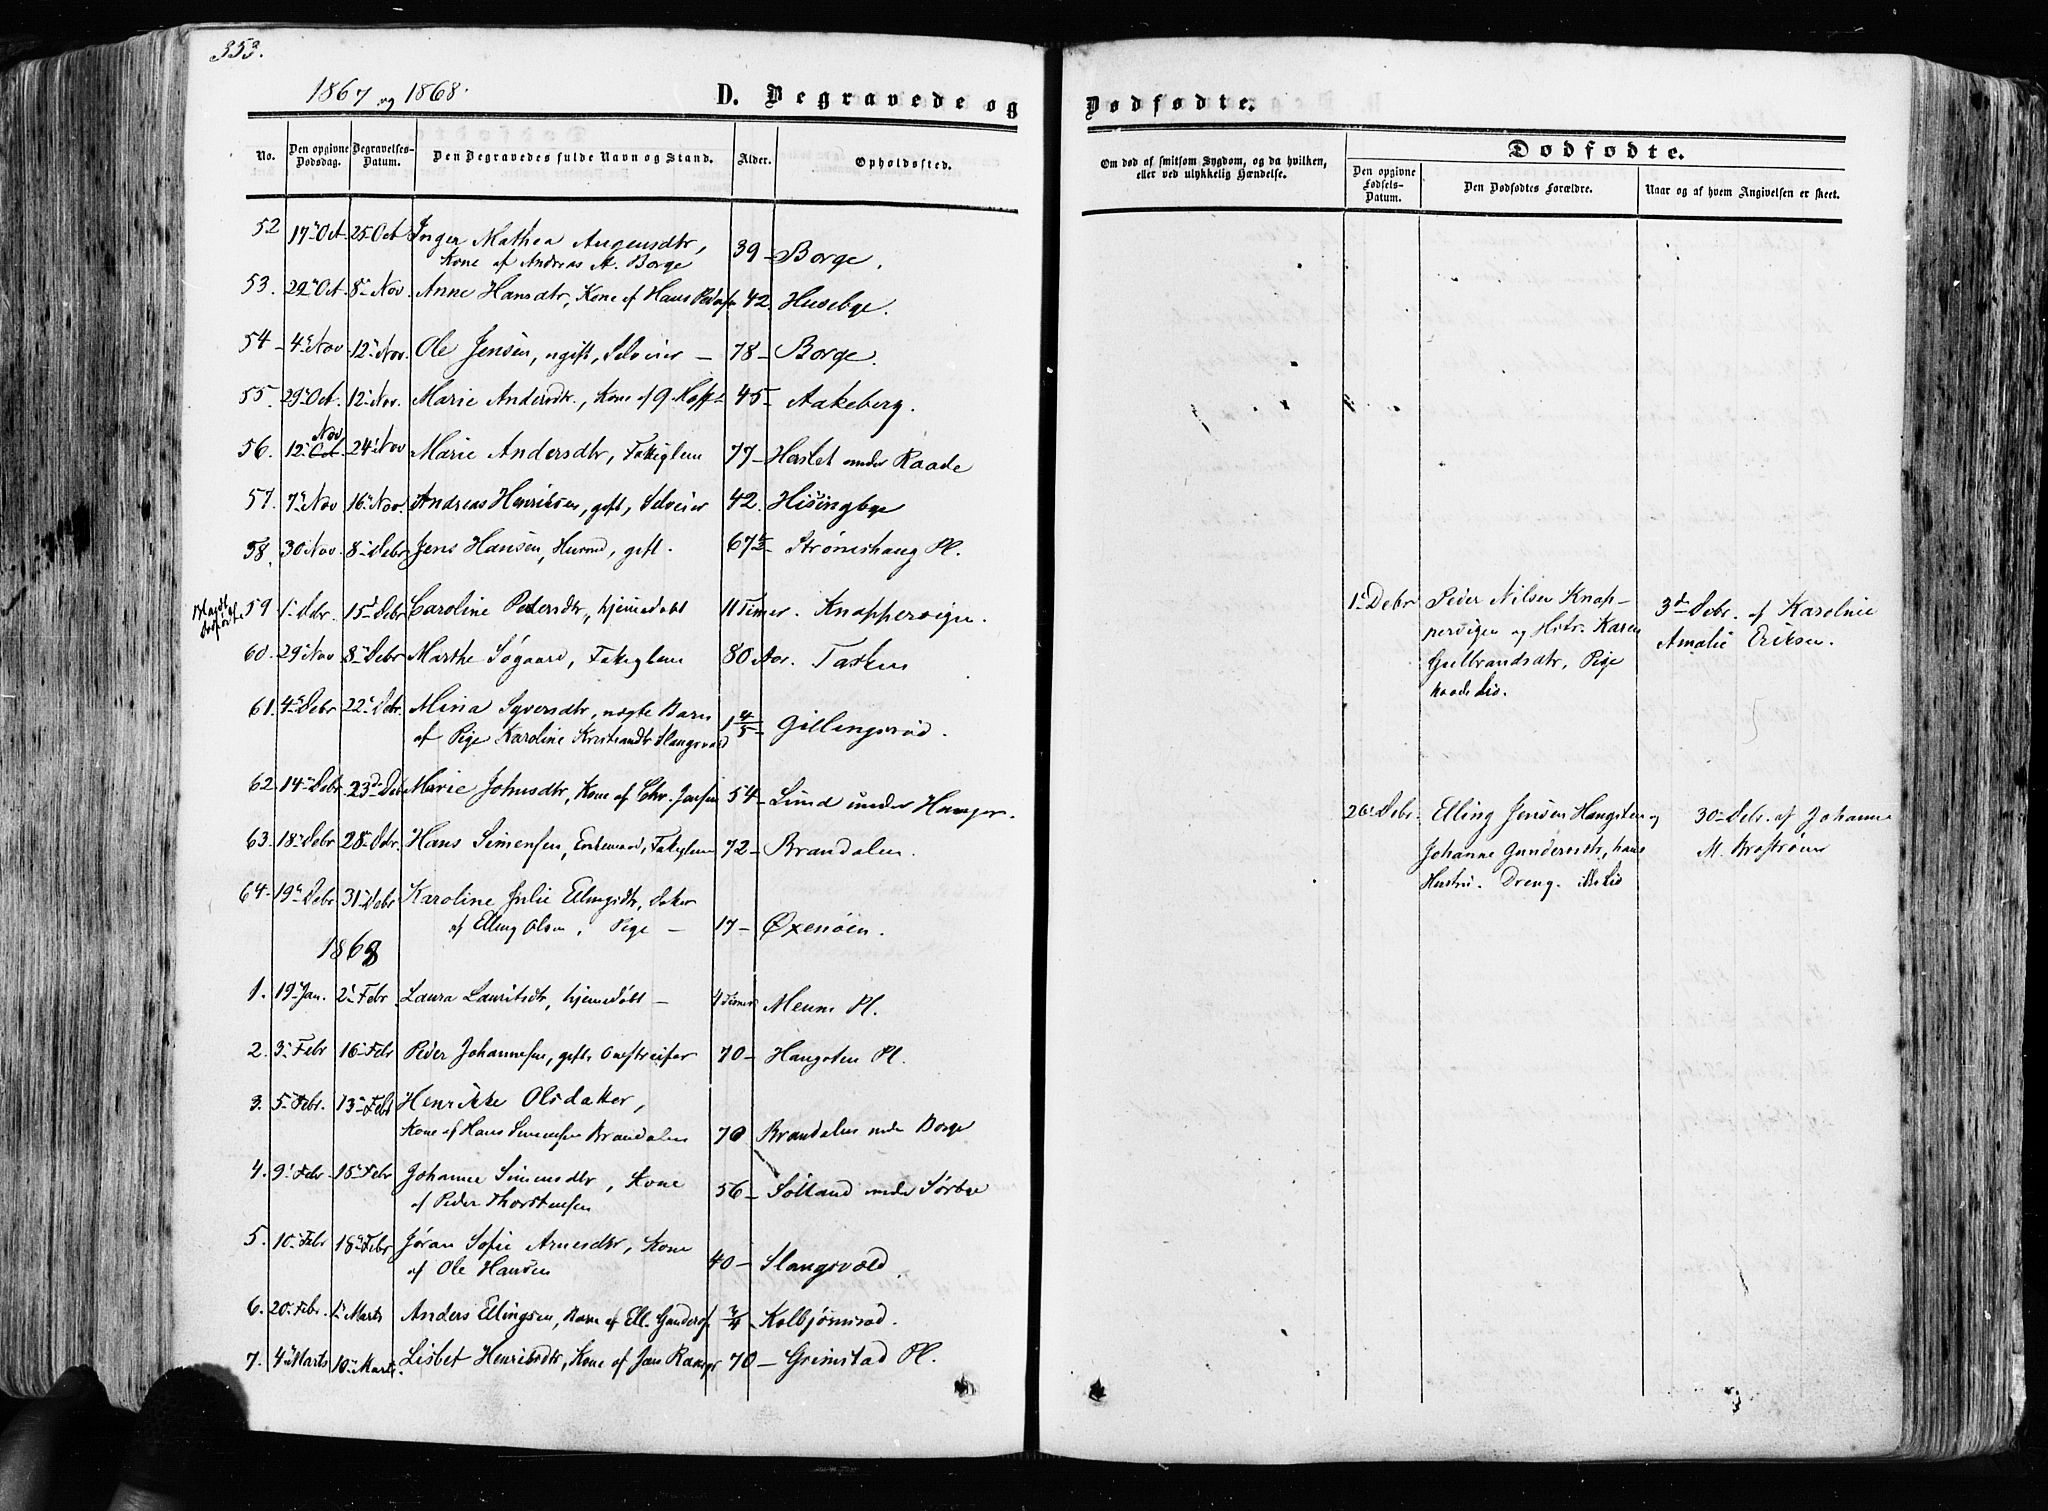 353.
1867 og 1868.
D. Begravede og Dødfødte.
No. Den opgivne Dødsdag. Begravelses-Datum. Den Begravedes fulde Navn og Stand. Alder. Opholdssted.
Om død af smitsom Sygdom, og da hvilken, eller ved ulykkelig Hændelse.
Dødfødte.
Den opgivne Fødsels-Datum. Den Dødfødtes Forældre. Naar og af hvem Angivelsen er skeet.
52 17 Oct 25 Oct Inger Mathea Augensdtr,
Kone af Andreas A. Borge 39 - Borge.
53. 29 Oct 8 Nov. Anne Hansdtr, Kone af Hans 42. Husebye.
54 - 4 Nov 12 Nov. Ole Jensen, ugift, Selveier - 78 - Borge.
55. 29 Oct. 12 Nov. Marie Andersdtr., Kone af 45 - Aakeberg.
Nov
56. 12 Oct. 24 Nov Marie Andersdtr, Fattiglem 77 - Herslet under Raade
57. 7 Nov 16 Nov. Andreas Henriksen, gift, Selveier 42. Hisingbye
58. 30 Nov. 8 Debr Jens Hansen, Huusmd, gift. 67 Strømshaug Pl.
59 1 Debr. 15 Debr Caroline Pedersdtr, hjemmedøbt 11 Timer. Knappervigen.
60. 29 Nov 8 Debr Marthe Søgaard, Fattiglem 80 Aar. Tasken
61. 4 Debr 22 Debr. Mina Syversdtr, uægte Barn
af Pige Karoline Slangsvold 1 4/5 - Gillingsrød.
62. 14 Debr. 23 Deb Marie Johnsdtr, Kone af Chr. Jensen 54 - Lund under Hauger.
63. 18 Debr 28 Debr. Hans Simensen, Enkemand, Fattiglem 72 - Brandalen.
64. 19 Debr 31 Debr Karoline Julie Ellingsdtr, Datter
af Elling Olsen, Pige - 17 - Øxenøen.
1868
1. 19 Jan. 2 Febr Laura Lauritsdtr, hjemmedøbt - 4 Timer Meum Pl.
2. 3 Febr 16 Febr Peder Johannesen, gift, 70 - Haugsten Pl.
3. 5 Febr. 13 Febr Henrikke Olsdatter,
Kone af Hans Simensen Brandalen 70 Brandalen under Borge
4. 9 Febr 15 Febr Johanne Simensdtr, Kone
af Peder Thorstensen 56 - Solland under Sørbye
5. 10 Febr 18 Febr Jøran Sofie Arnesdtr, Kone
af Ole Hansen 40 - Slangsvold.
6. 20 Febr. 1 Marts Anders Ellingsen, Barn af Ell. 3/4 - Kolbjørnsrød.
7. 4 Marts 10 Marts. Lisbet Henriksdtr, Kone af Jan 70 - Grimstad Pl.
1 Debr Peder Nilsen Knap-
pervigen og Hstr. Karen
Gulbrandsdtr, Pige
3d Debr. af Karoline
Amalie Eriksen.
26 Debr. Elling Jensen Haugsten og
Johanne Gundersdtr, hans
Hustru. Dreng. ikke Liv
30 Debr. af Johanne
M. Brostrøm